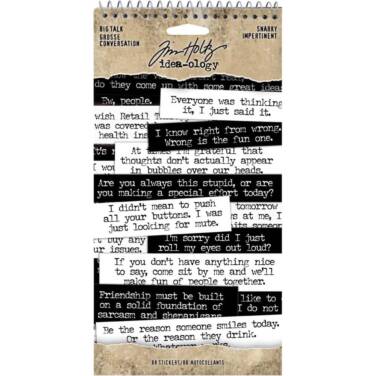 BIG TALK
GROSSE
CONVERSATION
SNARKY
IMPERTINENT
Tim Holtz
idea-ology
do they come up with some great ideas
Ew, people.
Everyone was thinking
it, I just said it.
wish Retail
was covered
health ins
I know right from wrong.
Wrong is the fun one.
At times I'm grateful that
thoughts don't actually appear
in bubbles over our heads.
Are you always this stupid, or are
you making a special effort today?
I didn't mean to push
all your buttons. I was
just looking for mute.
tomorrow
at me, I
its some
buy any
ur issues.
I'm sorry did I just
roll my eyes out loud?
If you don't have anything nice
to say, come sit by me and we'll
make fun of people together.
Friendship must be built
on a solid foundation of
sarcasm and shenanigans.
like to
I do not
Be the reason someone smiles today.
Or the reason they drink.
Whatever works.
88 STICKERS/88 AUTOCOLLANTS